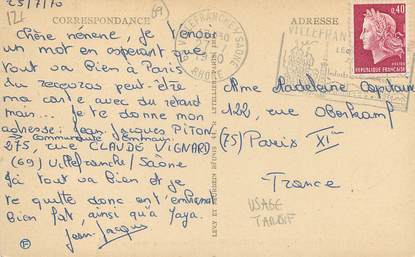 25/7/70
121
69
CORRESPONDANCE
Chère nénene, je t'envoie
un mot en espérant que
tout va Bien à Paris
Tu recevras peut-être
ma carte avec du retard
mais... je te donne mon
adresse: Jean-Jacques PITON
→ Communauté d'Emmaüs
275, rue CLAUDE VIGNARD
(69) Villefranche/Saône
Ici tout va Bien et je
te quitte donc en t'embrassant
Bien fort, ainsi qu'à Yaya.
Jean-Jacques
LEVY ET NEURDEIN RÉUNIS
VILLEFRANCHE S/SAONE
RHONE
ADRESSE
VILLEFRAN
0,40
REPUBLIQUE FRANCAISE
POSTES
Mme Madeleine Capitaine
122, rue Oberkampf
(75) Paris XIe
France
USAGE
TARDIF